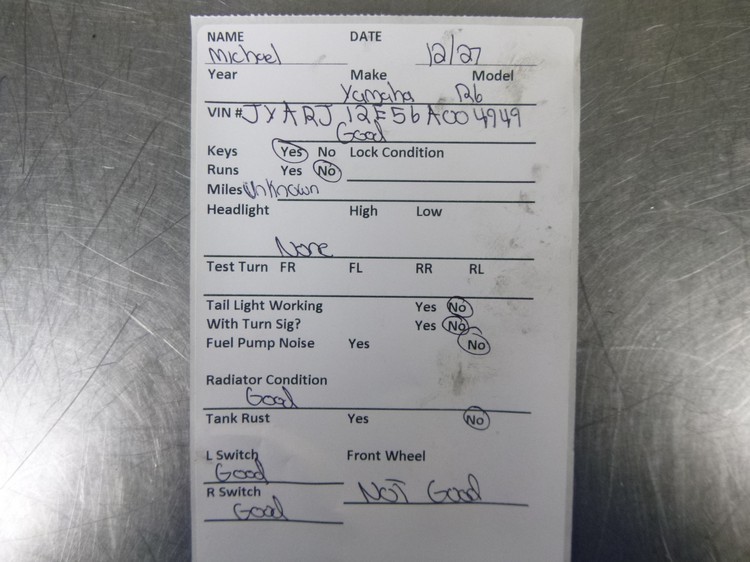 NAME DATE
Michael 12/27
Year Make Model
Yamaha R6
VIN # JYARJ12E56A004949
Good
Keys Yes No Lock Condition
Runs Yes No
Miles Unknown
Headlight High Low
None
Test Turn FR FL RR RL
Tail Light Working Yes No
With Turn Sig? Yes No
Fuel Pump Noise Yes No
Radiator Condition
Good
Tank Rust Yes No
L Switch Front Wheel
Good
NOT Good
R Switch
Good